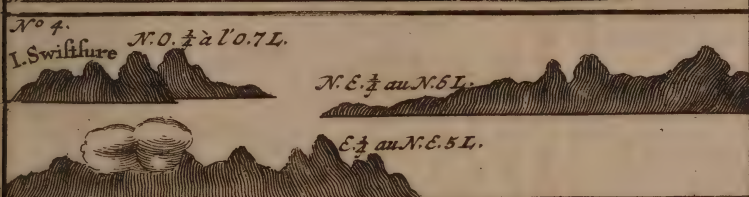 N.º 4.
I. Swiftsure
N.O. ¾ à l'O. 7 L.
N. E. ½ au N. 6 L.
E. ½ au N. E. 5 L.